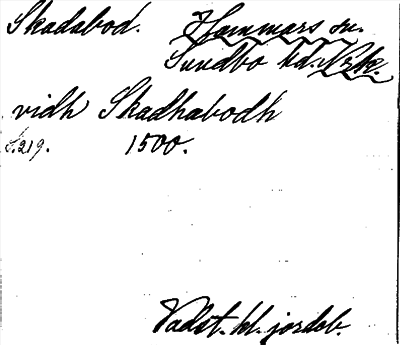 Skadabod. Hammars sn.
Sundbo hd. Nrke.
vidh Skadhabodh
S.219. 1500.
Vadst. kl. jordeb.